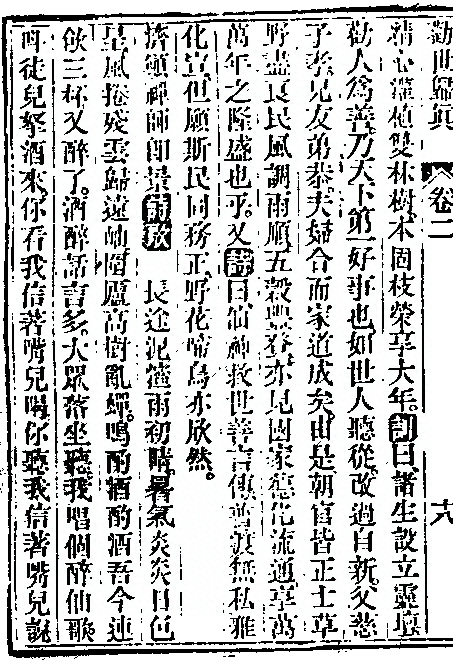 勸世歸眞 卷二 十六
精心滋植雙林樹木固枝榮享大年。訓曰、諸生設立靈壇
勸人爲善、乃天下第一好事也、如世人聽從、改過自新、父慈
子孝、兄友弟恭、夫婦合而家道成矣、由是朝官皆正士、草
野盡良民、風調雨順、五穀豐登、亦見國家德化流通享萬
萬年之隆盛也乎。又詩曰 神救世善言傳普渡無私雅
化宣、但願斯民同務正、野花啼鳥亦欣然。
濟顚禪師卽景詩歌 長途泥 雨初晴、暑氣炎炎日色
呈、風捲殘雲歸遠岫、圍廬高樹亂蟬鳴、酌酒酌酒吾今連
飲三杯又醉了。酒醉話言多、大眾落坐聽、我唱個醉仙歌、
呌徒兒拏酒來、你看我信著嘴兒喝、你聽我信著嘴兒說